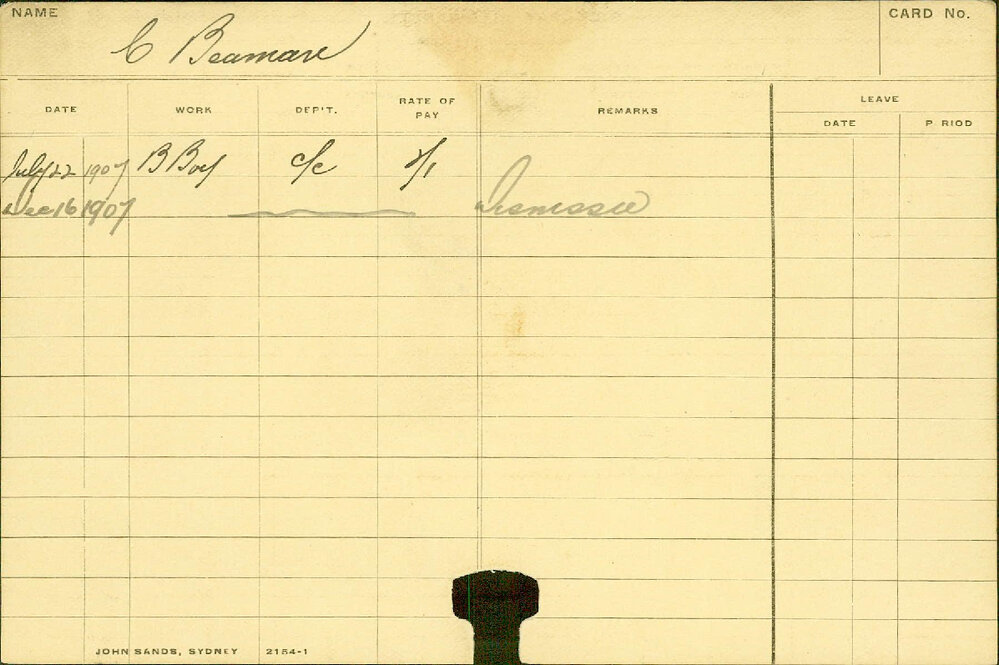 NAME CARD No.
C Beamare
DATE WORK DEP'T. RATE OF PAY REMARKS LEAVE
DATE P RIOD
July 22 1907 B Boy c/c 2/1
Dec 16 1907
JOHN SANDS, SYDNEY 2154-1